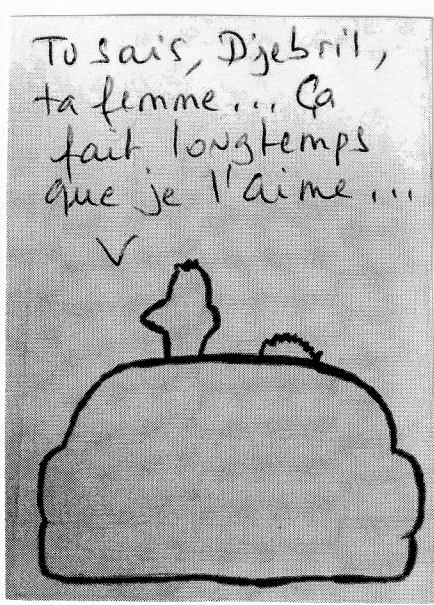 Tu sais, Djebril,
ta femme... Ça
fait longtemps
que je l'aime...